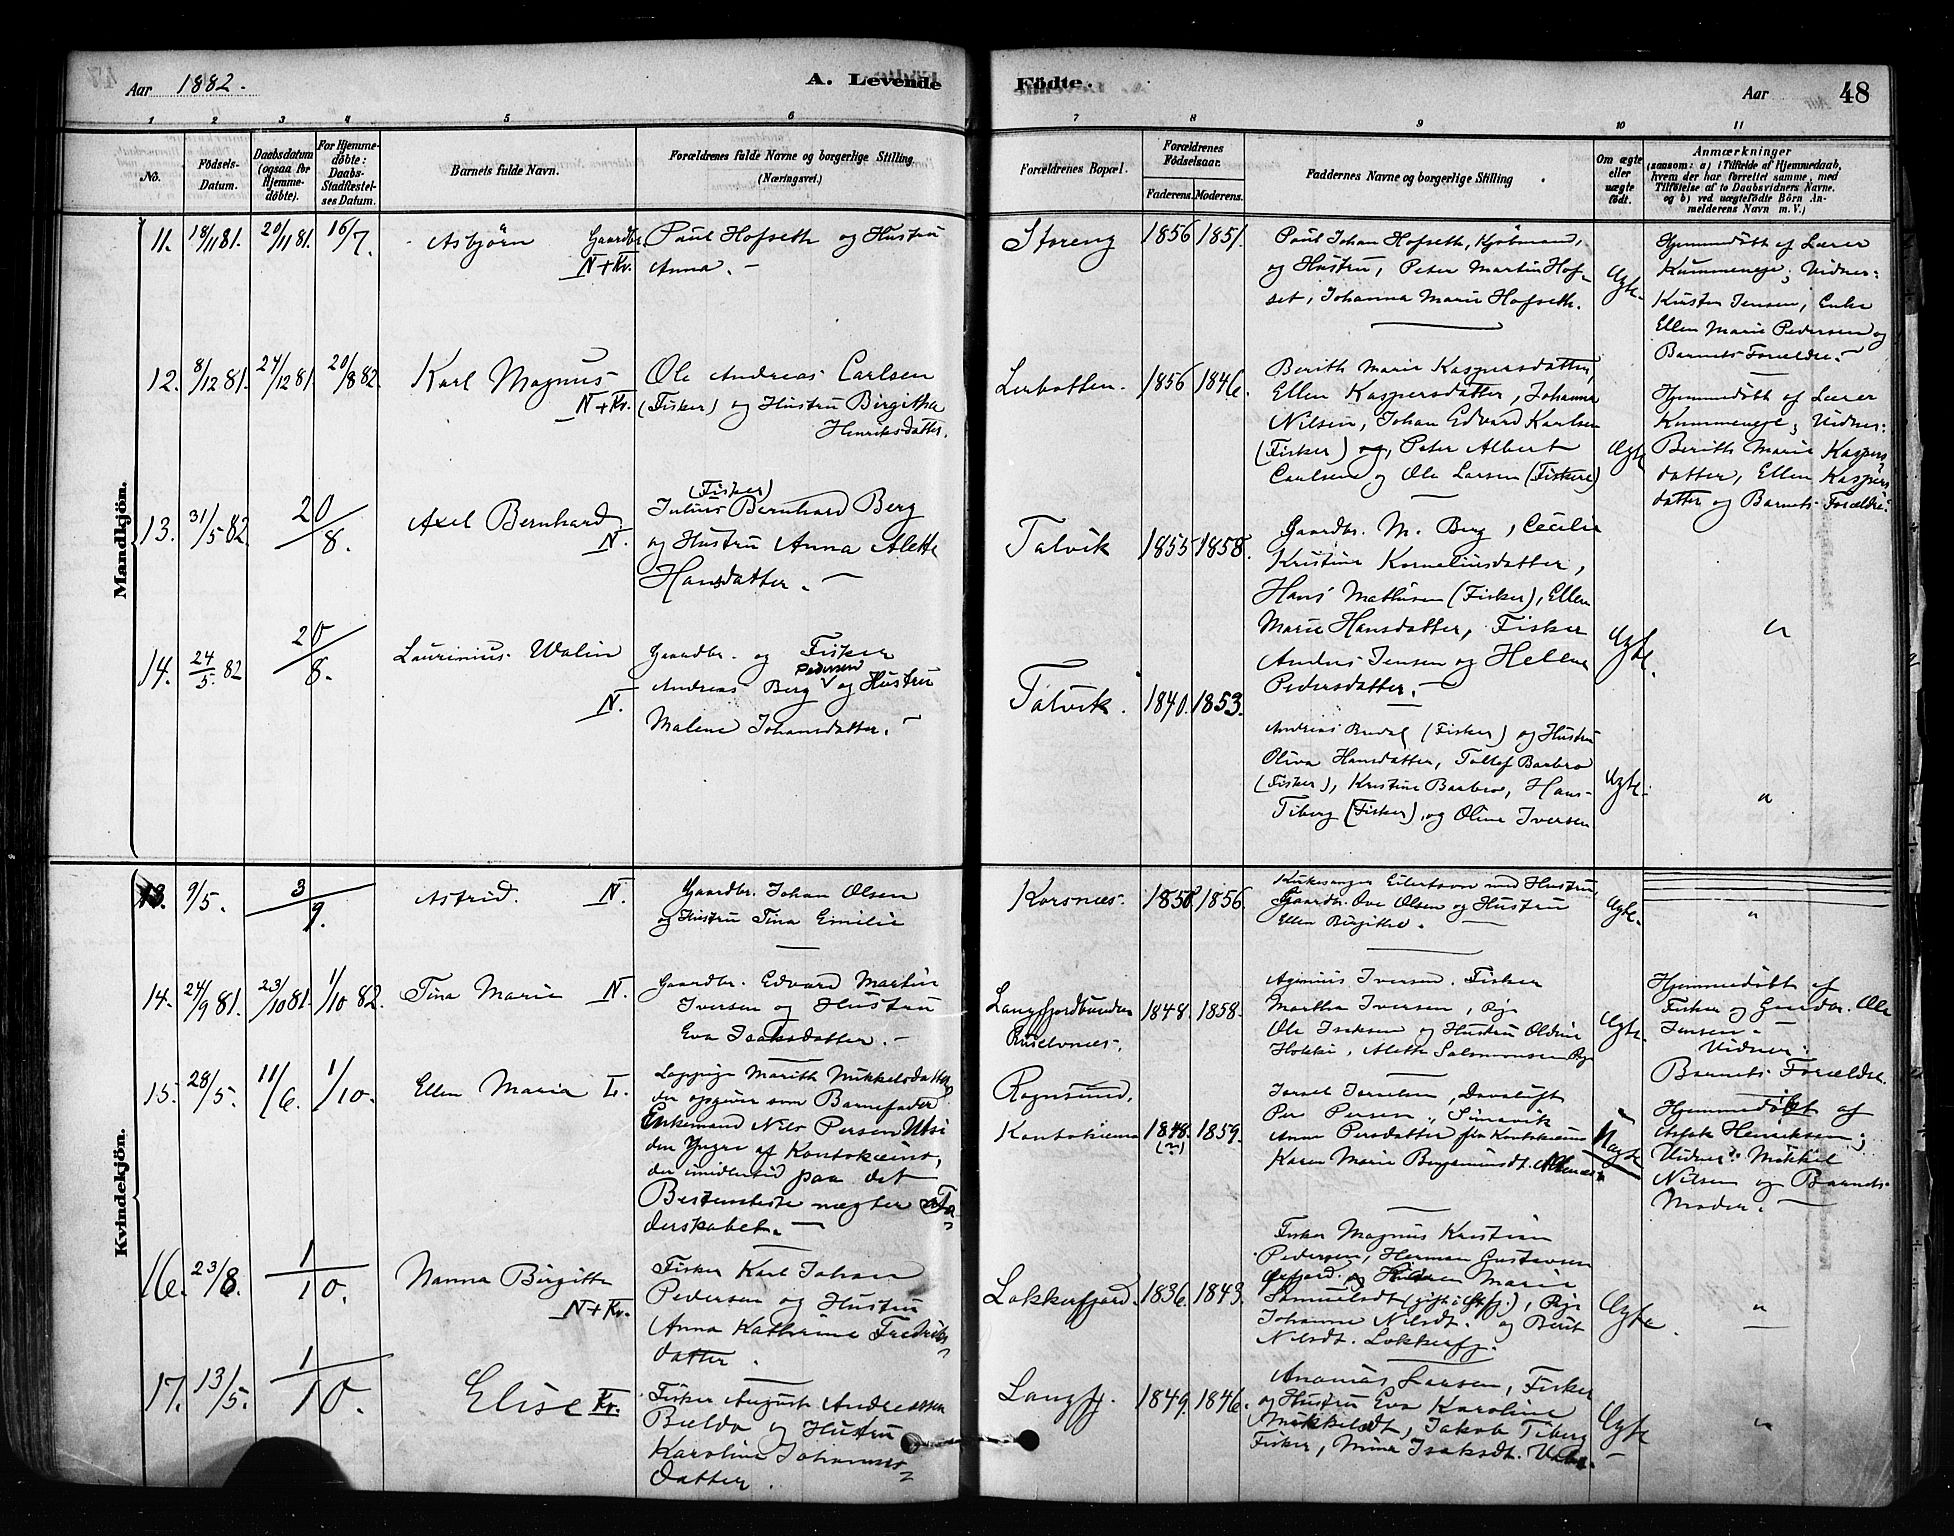 Aar 1882.
A. Levende
Födte.
Aar
48
1 2 3 4 5 6 7 8 9 10 11
No.
Födsels-Datum.
Daabsdatum (ogsaa for Hjemme-döbte).
For Hjemme-döbte: Daabs-Stadfæstel-ses Datum.
Barnets fulde Navn.
Forældrenes fulde Navne og borgerlige Stilling.
(Næringsvei.)
Forældrenes Bopæl.
Forældrenes Födselsaar.
Faderens. Moderens.
Faddernes Navne og borgerlige Stilling
Om ægte eller uægte födt.
Anmærkninger
(saasom: a) i Tilfælde af Hjemmedaab,
hvem der har forrettet samme, med
Tilföielse af to Daabsvidners Navne.
og b) ved uægtefödte Börn An-
melderens Navn m. V.)
Mandkjön.
11. 18/11 81. 20/11 81. 16/7. Asbjörn N+Kv.
Gaardbr. Paul Hofseth og Hustru
Anna. -
Storeng 1856 1851.
Paul Johan Hofseth, Kjöbmand,
og Hustru, Peter Martin Hof-
set, Johanna Marie Hofseth.
Ægte.
Hjemmedöbt af Lærer
Kummeneje; Vidner:
Kirsten Jensen, Enke
Ellen Marie Pedersen og
Barnets Forældre. -
12. 8/12 81. 24/12 81. 20/8 82. Karl Magnus N+Kv.
Ole Andreas Carlsen
(Fisker) og Hustru Birgitha
Henriksdatter.
Lerbotten. 1856 1846.
Berith Marie Kaspersdatter,
Ellen Kaspersdatter, Johanna
Nilsen, Johan Edvard Karlsen
(Fisker) og, Peter Albert
Carlsen og Ole Larsen (Fiskere)
Ægte
Hjemmedöbt af Lærer
Kummeneje; Vidner:
Berith Marie Kaspers
datter, Ellen Kaspers
datter og Barnets Forældre.
13. 31/5 82. 20/8. Axel Bernhard N.
(Fisker)
Julius Bernhard Berg
og Hustru Anna Alette
Hansdatter. -
Talvik 1855 1858.
Gaardbr. M. Berg, Cecilie
Kristine Korneliusdatter,
Hans Mathisen (Fisker), Ellen
Marie Hansdatter, Fisker
Anders Jensen og Hellene
Pedersdatter. -
Ægte.
"
14. 24/5 82 20/8. Laurinius Walin N.
Gaardbr. og Fisker
Pedersen
Andreas Berg og Hustru
Malene Johansdatter. -
Talvik. 1840. 1853.
(Fisker) og Hustru
Oliva Hansdatter, Tollef Barbro
(Fisker), Kristine Barbro, Hans
Tiberg (Fisker), og Oline Iversen
Ægte.
"
Kvindekjön.
13. 9/5. 3/9. Astrid. N.
Gaardbr. Johan Olsen
og Hustru Tina Emilie
Korsnæs. 1850 1856.
Kirkesanger Eilertsen med Hustru
Gaardbr. Ove Olsen og Hustru
Ellen Birgitte. -
Ægte.
"
14. 24/9 81. 23/10 81. 1/10 82. Tina Marie N.
Gaardbr. Edvard Martin
Iversen og Hustru
Eva Isaksdatter. -
Langfjordbunden 1848. 1858.
Iversen. Fisker
Martha Iversen, Pige
Ole Isaksen og Hustru
Alette Salomonsen Pige
Ægte.
Hjemmedöbt af
Fisker og Gaardbr. Ole
Jensen. -
Vidner:
Barnets Forældre.
15. 28/5. 11/6. 1/10. Ellen Maria L.
Marith Mikkelsdatter
der opgiver som Barnefader
Enkemand Nils Persen Utsi
den Yngre af Kautokeino,
der imidlertid paa det
Bestemteste nægter Fa-
derskabet. -
Rognsund.
Kautokeino 1848. (?) 1859.
Per Persen,
Anne Persdatter fra Kautokeino
Karen Marie Benjaminsdt.
Uægte
Hjemmedöbt af
Henriksen;
Vidner: Mikkel
Nilsen og Barnets
Moder. -
16. 23/8. 1/10. Nanna Birgitte N+Kv.
Fisker Karl Johan
Pedersen og Hustru
Anna Kathrine Fredriks-
datter.
Lokkerfjord. 1836. 1843.
Fisker Magnus Kristian
Pedersen, Herman Gustavsen
Marie
Samuelsdt Pige
Johanne Nilsdt. og Berit
Nilsdt. Lokkerfj.
Ægte.
"
17. 13/5. 1/10. Elise Kv.
Fisker August Andreassen
Bælda og Hustru
Karoline Johannes-
datter.
Langfj. 1849. 1846.
Ananias Larsen, Fisker
og Hustru Eva Karoline
Mikkelsdt, Jakob Tiberg
Fisker, Mina Isaksdt.
Ægte
"